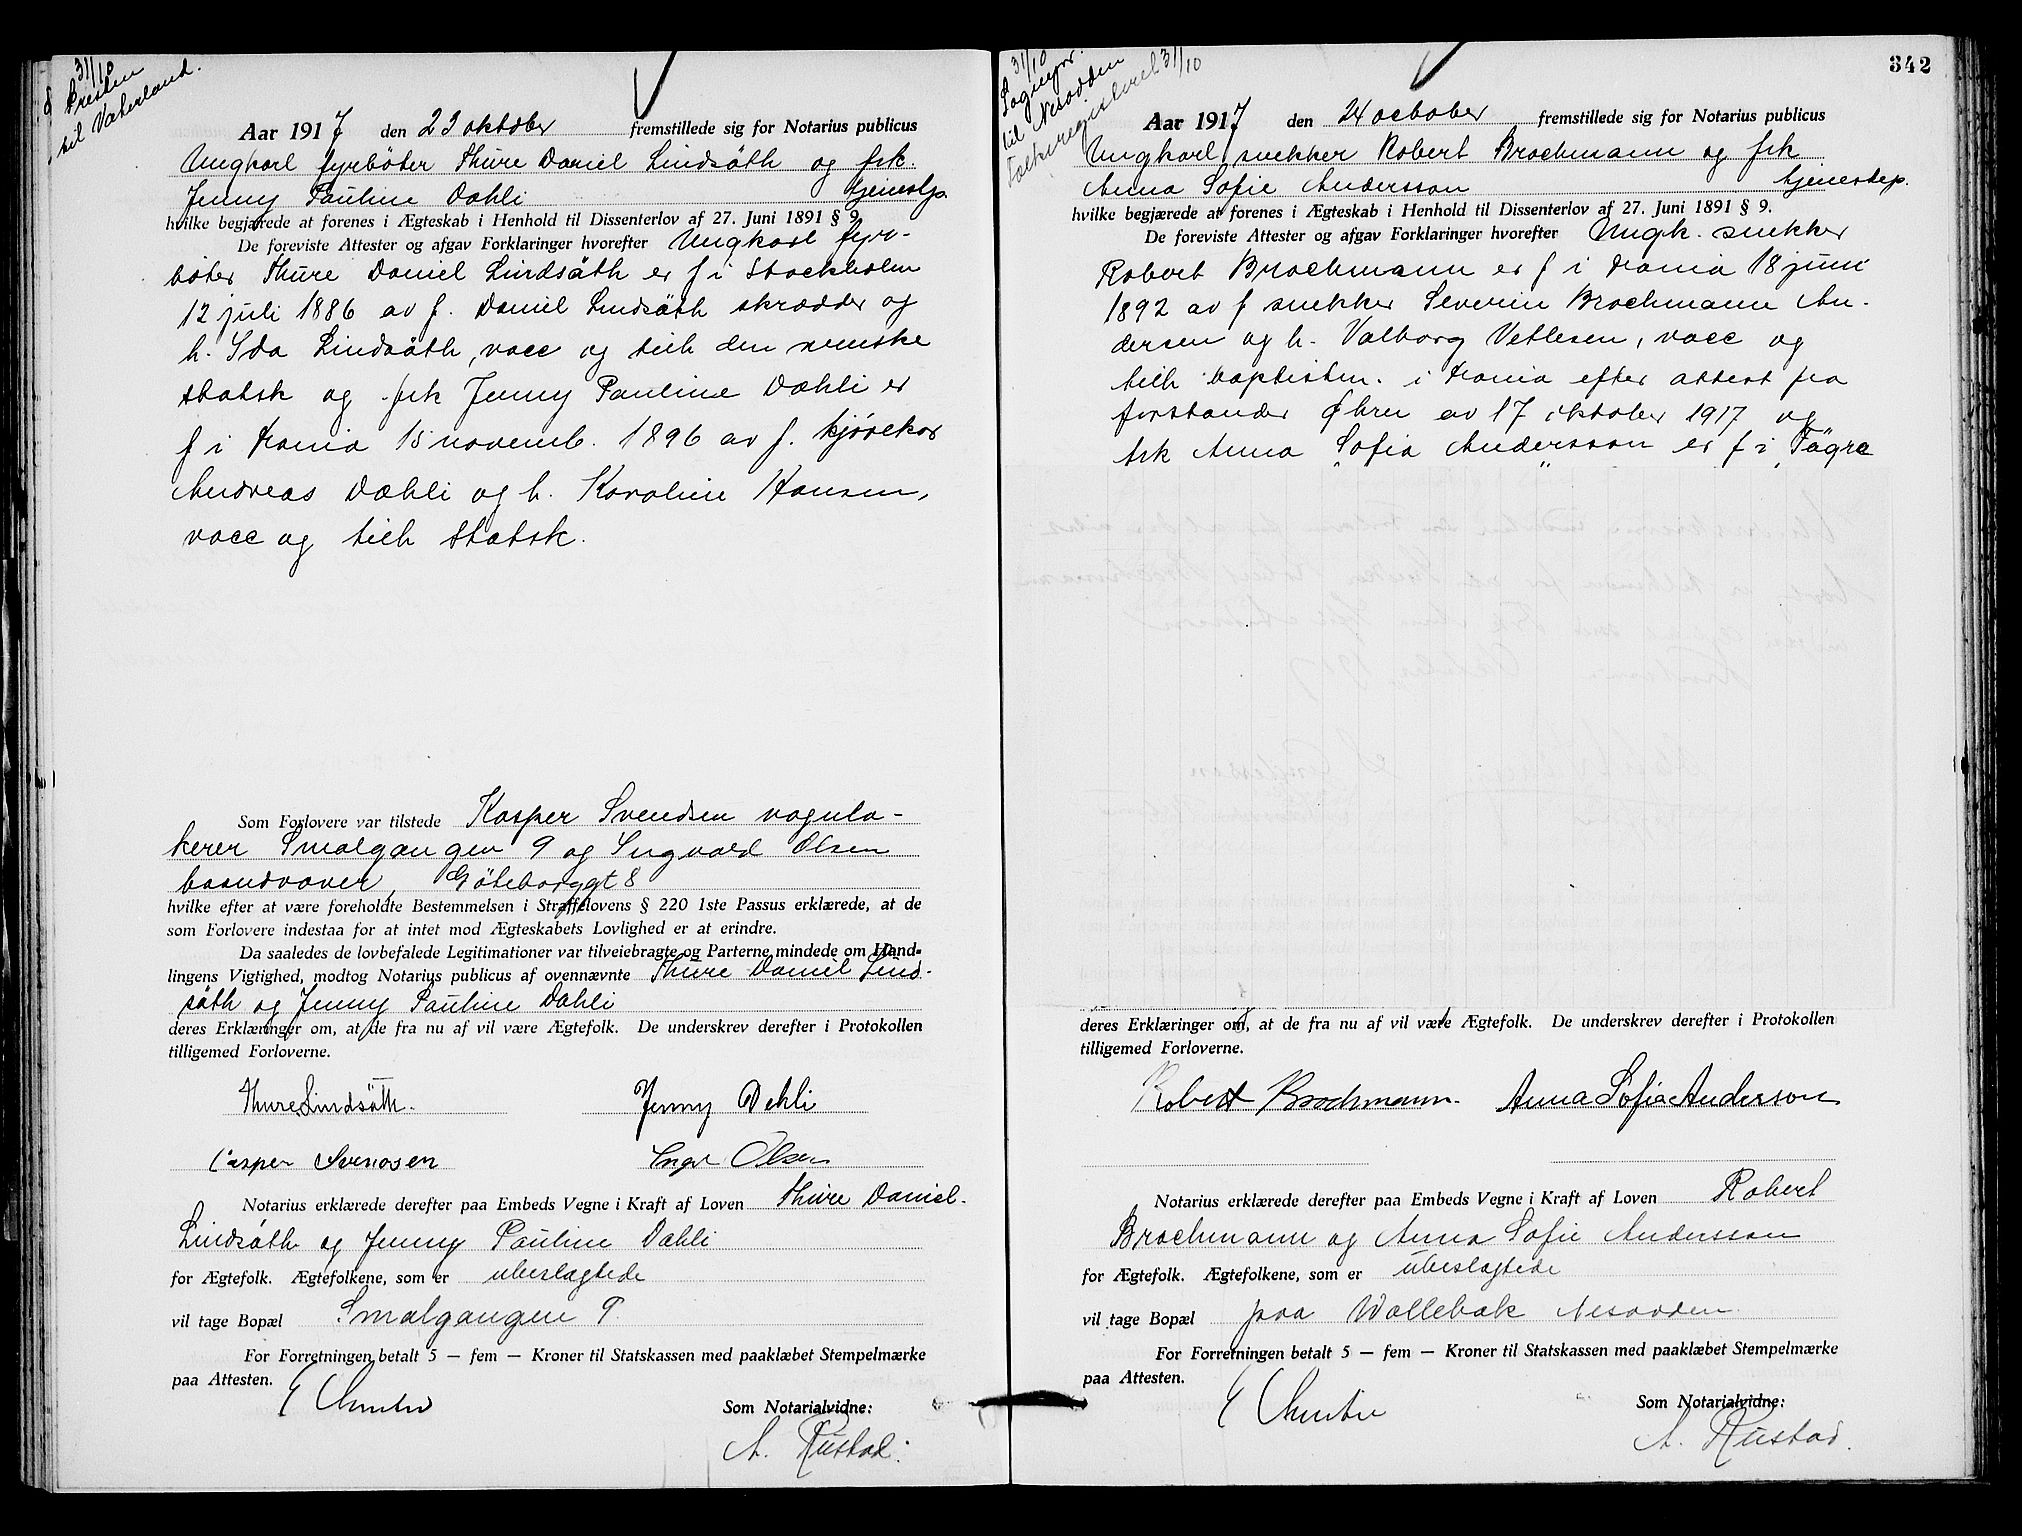 31/10
Presten
til Vaterland.
Aar 1917 den 23 oktober fremstillede sig for Notarius publicus
Ungkarl fyrbøter Thure Daniel Lindsäth og frk.
Jenny Pauline Dahli tjenestp.
hvilke begjærede at forenes i Ægteskab i Henhold til Dissenterlov af 27. Juni 1891 § 9.
De foreviste Attester og afgav Forklaringer hvorefter Ungkarl fyr-
bøter Thure Daniel Lindsäth er f i Stockholm
12 juli 1886 av f. Daniel Lindsäth skrædder og
h. Ida Lindsäth, vacc og tilh den svenske
statsk og frk Jenny Pauline Dæhli er
f i Krania 15 novemb. 1896 av f. kjørekar
Andreas Dæhli og h. Karoline Hansen,
vacc og tilh Statsk.
Som Forlovere var tilstede Kasper Svendsen vognla-
kerer Smalgangen 9 og Ingvald Olsen
baandvæver, Göteborggt 8
hvilke efter at være foreholdte Bestemmelsen i Straffelovens § 220 1ste Passus erklærede, at de
som Forlovere indestaa for at intet mod Ægteskabets Lovlighed er at erindre.
Da saaledes de lovbefalede Legitimationer var tilveiebragte og Parterne mindede om Hand-
lingens Vigtighed, modtog Notarius publicus af ovennævnte Thure Daniel Lind-
säth og Jenny Pauline Dahli
deres Erklæringer om, at de fra nu af vil være Ægtefolk. De underskrev derefter i Protokollen
tilligemed Forloverne.
Thure Lindsäth. Jenny Dehli
Casper Svendsen Ingv Olsen
Notarius erklærede derefter paa Embeds Vegne i Kraft af Loven Thure Daniel
Lindsäth og Jenny Pauline Dahli
for Ægtefolk. Ægtefolkene, som er ubeslægtede
vil tage Bopæl Smalgangen 9.
For Forretningen betalt 5 — fem — Kroner til Statskassen med paaklæbet Stempelmærke
paa Attesten.
Som Notarialvidne:
A. Rustad.
342
31/10
Sognepr.
til Nesodden
Folkeregisteret 31/10
Aar 1917 den 24 october fremstillede sig for Notarius publicus
Ungkarl snekker Robert Brochmann og frk
Anna Sofie Andersson tjenestep.
hvilke begjærede at forenes i Ægteskab i Henhold til Dissenterlov af 27. Juni 1891 § 9.
De foreviste Attester og afgav Forklaringer hvorefter Ungk. snekker
Robert Brochmann er f i Krania 18 juni
1892 av f snekker Severin Brochmann An-
dersen og h. Valborg Vetlesen, vacc og
tilh baptisten. i Krania efter attest fra
forstander Øhrn av 17 oktober 1917 og
frk Anna Sofia Andersson er f i Fägre
deres Erklæringer om, at de fra nu af vil være Ægtefolk. De underskrev derefter i Protokollen
tilligemed Forloverne.
Robert Brochmann. Anna Sofia Anderson
Notarius erklærede derefter paa Embeds Vegne i Kraft af Loven Robert
Brochmann og Anna Sofie Andersson
for Ægtefolk. Ægtefolkene, som er ubeslægtede
vil tage Bopæl paa Wallebæk Nesodden
For Forretningen betalt 5 — fem — Kroner til Statskassen med paaklæbet Stempelmærke
paa Attesten.
Som Notarialvidne:
A. Rustad.